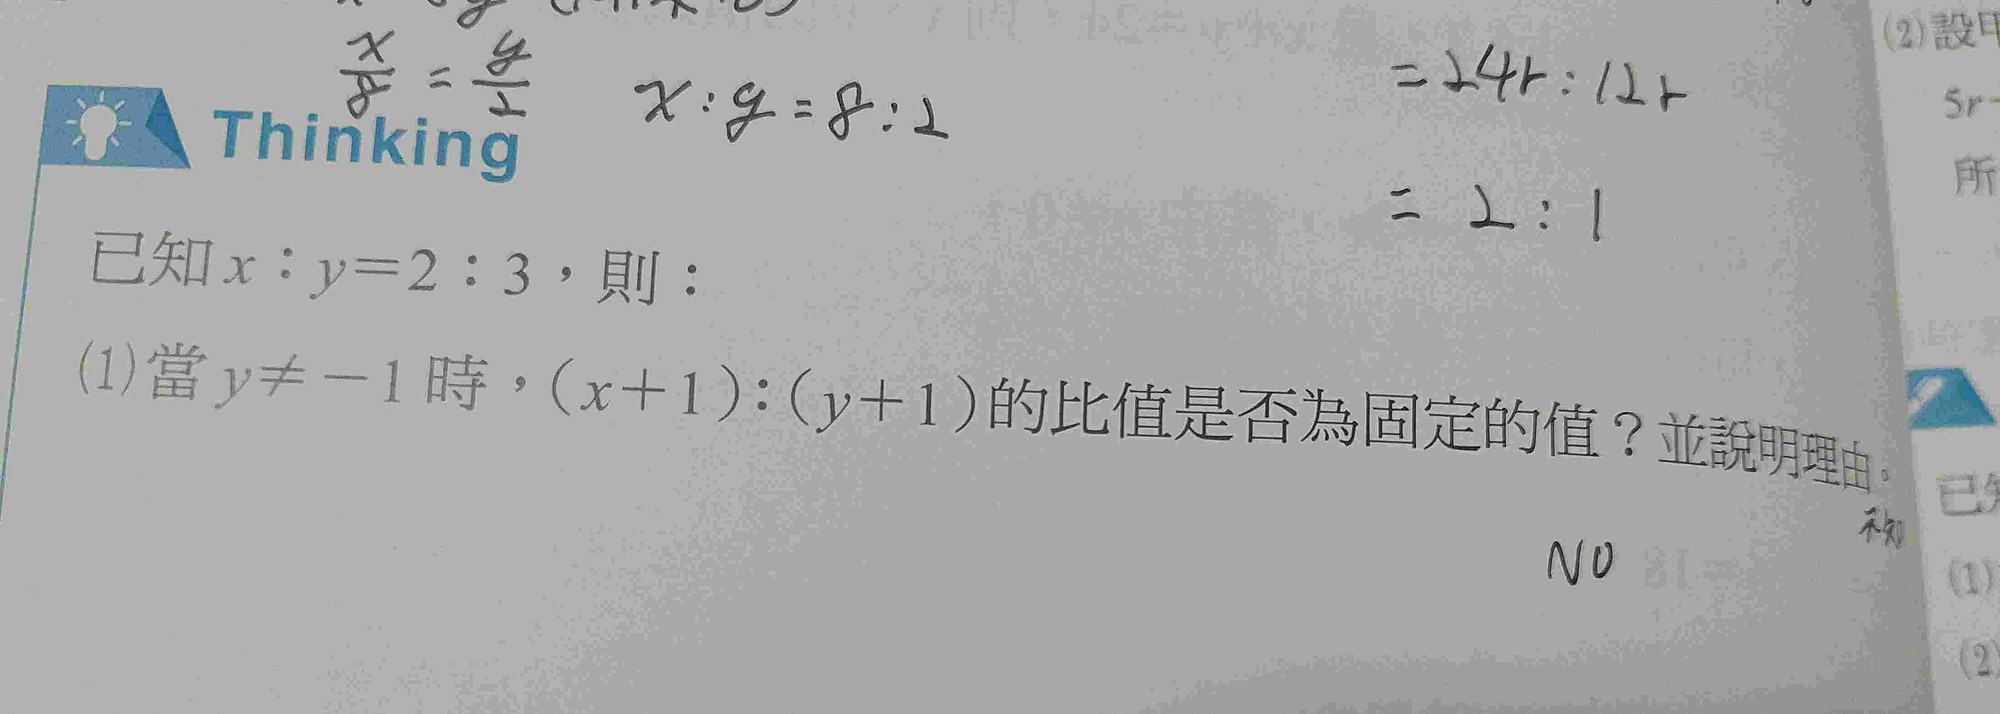 x/8 = y/2
x:y=8:2
=24r:12r
=2:1
Thinking
已知x：y＝2：3，則：
(1)當y≠－1時，(x＋1)：(y＋1)的比值是否為固定的值？並說明理由。
NO
(2)設
5r-
所
已
(1)
(2)